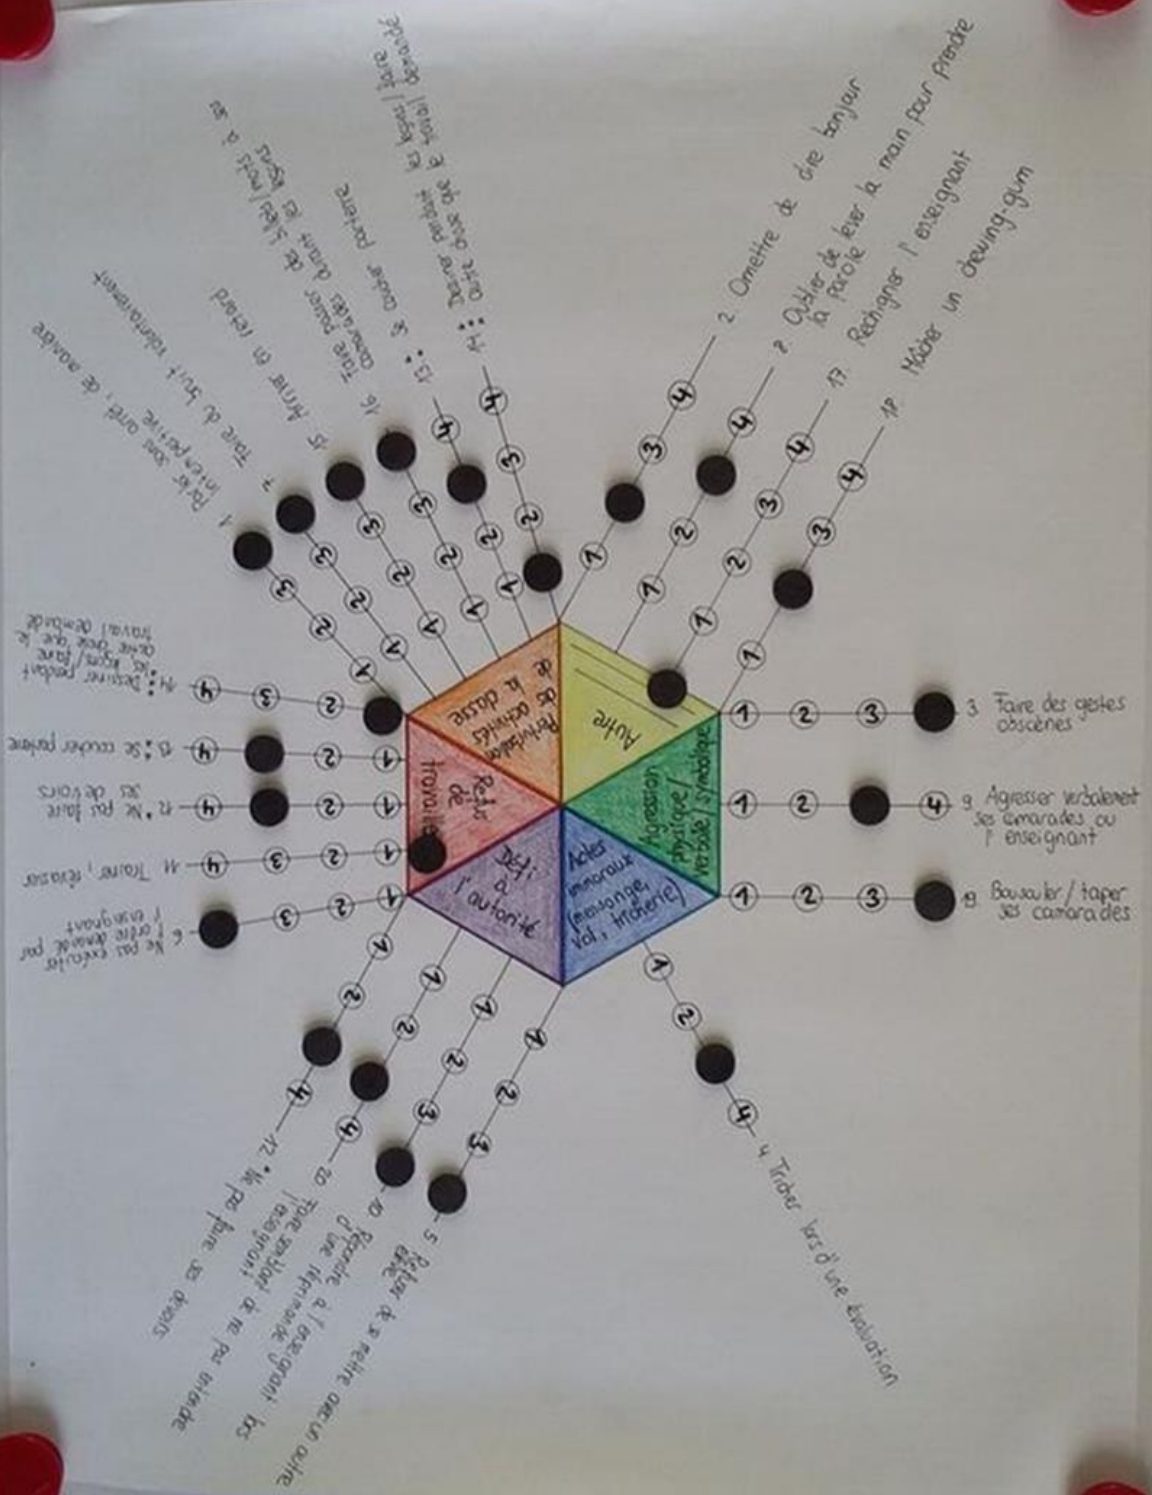 Perturbation
des activités
de
la classe
Autre
Agression
physique/
verbale/symbolique
Actes
immoraux
(mensonge,
vol, tricherie)
Défi
à
l'autorité
Refus
de
travailler
1 2 3 4
2 Omettre de dire bonjour
8 Oublier de lever la main pour prendre
la parole
17 Rechigner l'enseignant
18 Mâcher un chewing-gum
3 Faire des gestes
obscènes
9 Agresser verbalement
ses camarades ou
l'enseignant
19 Bousculer/taper
ses camarades
4 Tricher lors d'une évaluation
5 Refuser de se mettre avec un autre
élève
10 Répondre à l'enseignant lors
d'une réprimande
20 Faire semblant de ne pas entendre
l'enseignant
12* Ne pas faire ses devoirs
6 Ne pas exécuter
l'ordre demandé par
l'enseignant
11 Trainer, rêvasser
12* Ne pas faire
ses devoirs
13 Se coucher parterre
14 Dessiner pendant
les leçons/faire
autre chose que le
travail demandé
1 Parler sans arrêt, de manière
intempestive
7 Faire du bruit volontairement
15 Arriver en retard
16 Faire passer des billets/mots à ses
camarades durant les leçons
13 Se coucher parterre
14 Dessiner pendant les leçons/faire
autre chose que le travail demandé